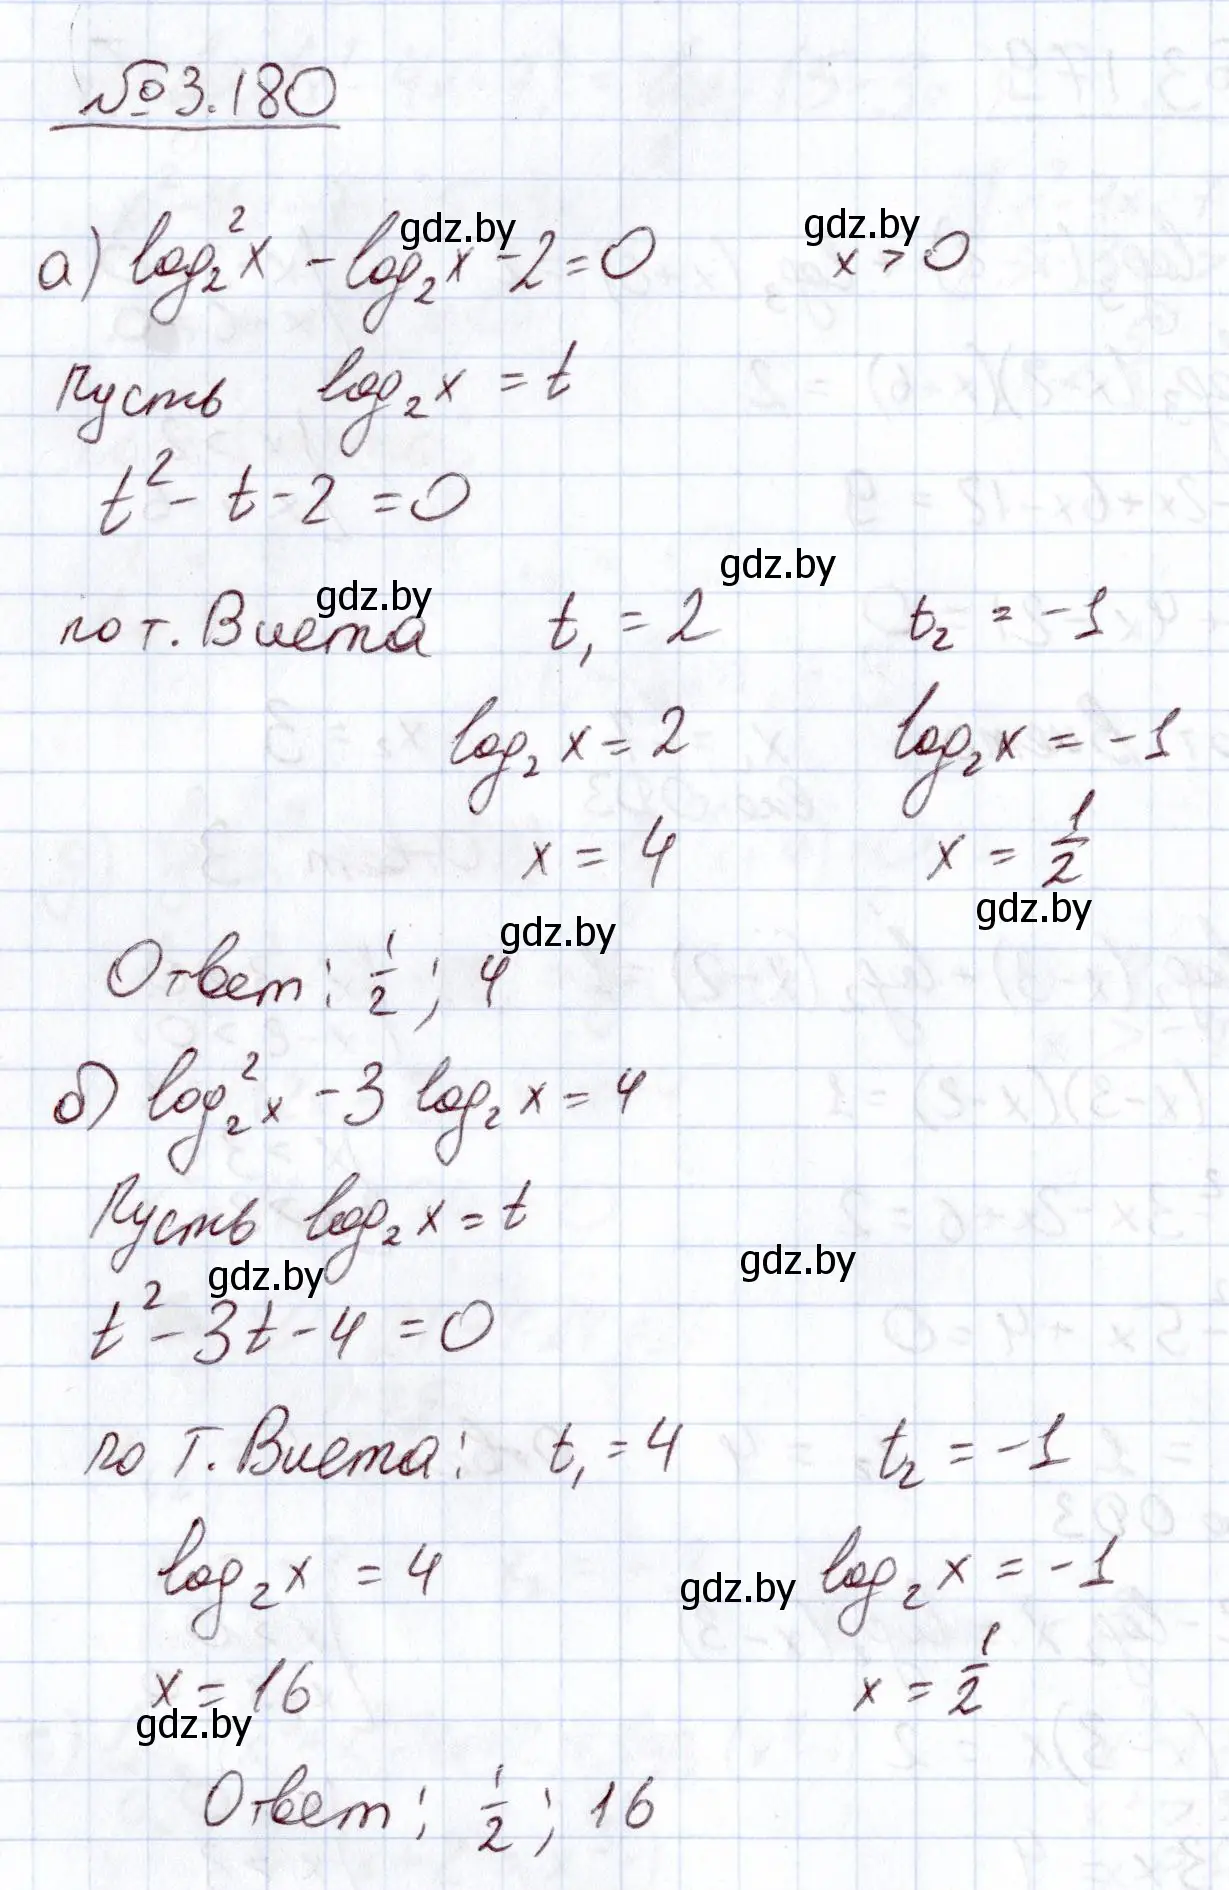 №3.180
gdz.by
gdz.by
а) log₂²x - log₂x - 2 = 0 x > 0
Пусть log₂x = t
t² - t - 2 = 0
gdz.by
gdz.by
по т. Виета t₁ = 2 t₂ = -1
log₂x = 2 log₂x = -1
x = 4 x = 1/2
gdz.by
gdz.by
Ответ: 1/2; 4
б) log₂²x - 3 log₂x = 4
Пусть log₂x = t
gdz.by
gdz.by
t² - 3t - 4 = 0
по т. Виета: t₁ = 4 t₂ = -1
log₂x = 4 gdz.by log₂x = -1
x = 16 x = 1/2
gdz.by
Ответ: 1/2; 16